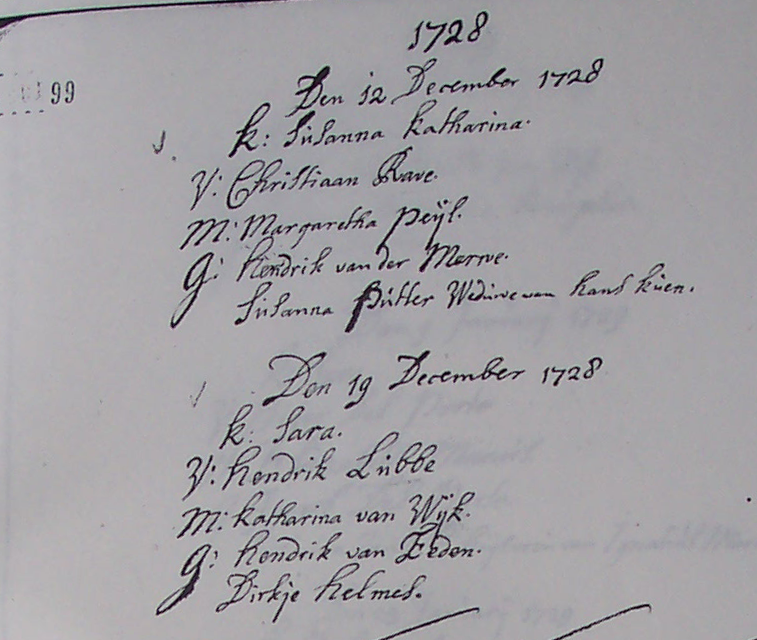 1728
99
Den 12 December 1728
K: Susanna Katharina.
V: Christiaan Rave.
M: Margaretha Peÿl.
G: Hendrik van der Merwe.
Susanna Putter Weduwe van Hans Kuen.
Den 19 December 1728
K: Sara.
V: Hendrik Lubbe
M: Katharina van Wÿk.
G: Hendrik van Eeden.
Dirkje Helmes.